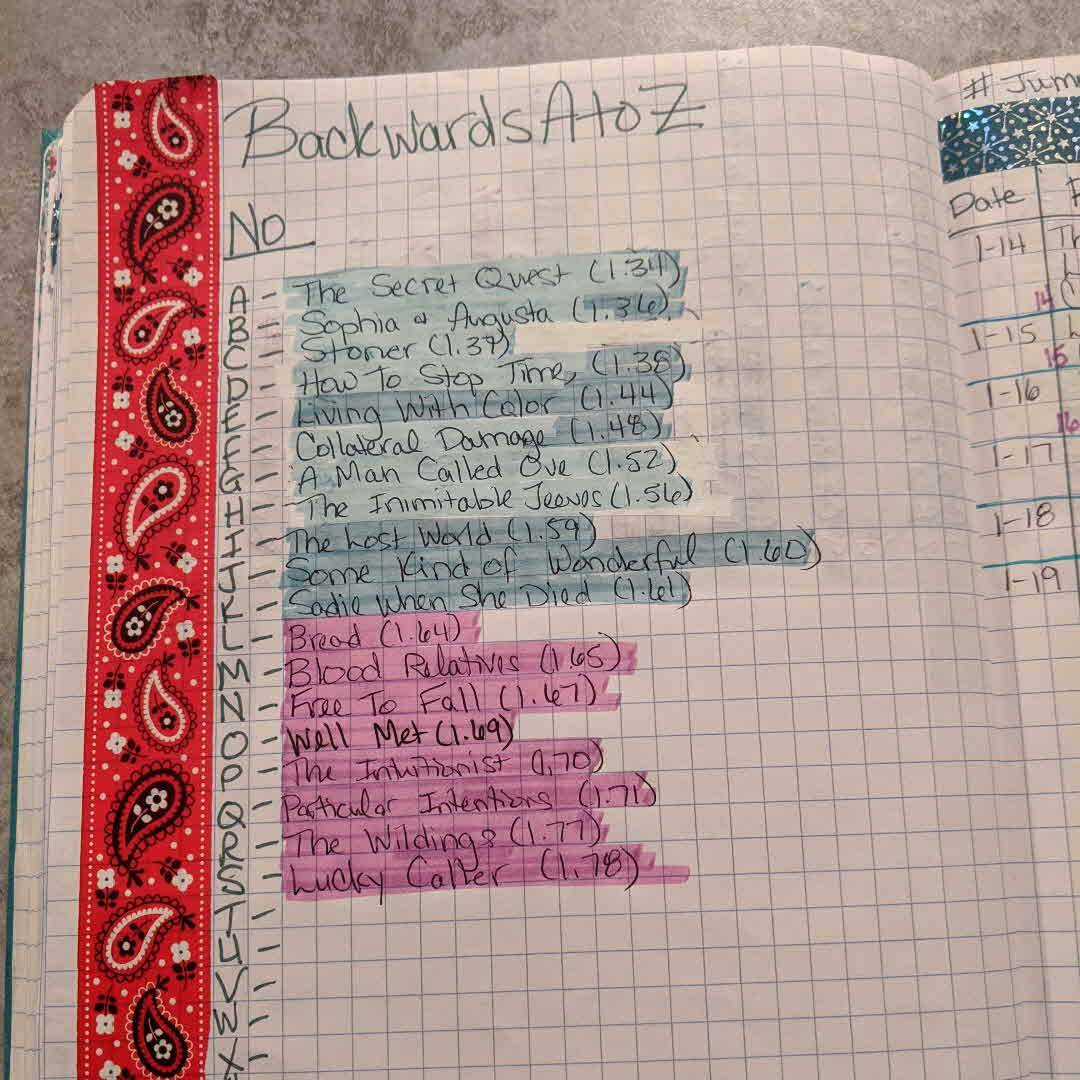 Backwards A to Z
No
A - The Secret Quest (1.34)
B - Sophia & Augusta (1.36)
C - Stoner (1.37)
D - How To Stop Time, (1.38)
E - Living With Color (1.44)
F - Collateral Damage (1.48)
G - A Man Called Ove (1.52)
H - The Inimitable Jeeves (1.56)
I - The Lost World (1.59)
J - Some Kind of Wonderful (1.60)
K - Sadie When She Died (1.61)
L - Bread (1.64)
M - Blood Relatives (1.65)
N - Free To Fall (1.67)
O - Well Met (1.69)
P - The Intuitionist (1.70)
Q - Particular Intentions (1.71)
R - The Wildings (1.77)
S - Lucky Caller (1.78)
T -
U -
V -
W -
X -
# Jum
Date
1-14 Th
14
1-15
15
1-16
16
1-17
1-18
1-19